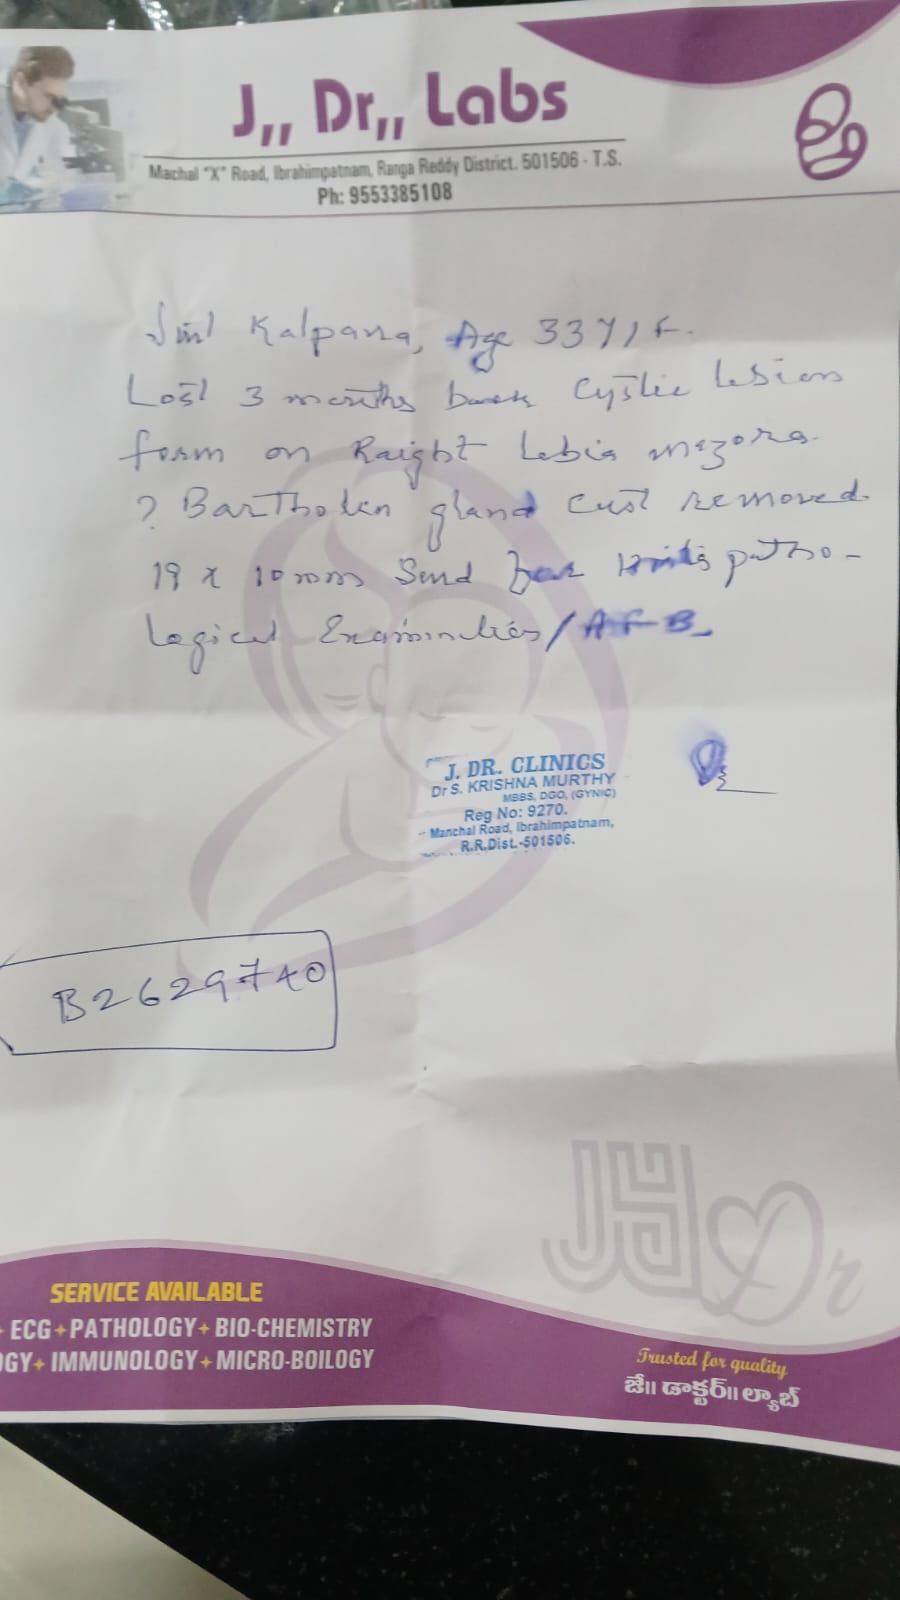 J,, Dr,, Labs
Machal "X" Road, Ibrahimpatnam, Ranga Reddy District. 501506 - T.S.
Ph: 9553385108
Smt Kalpana, Age 33Y/F.
Last 3 months back Cystic lesion
form on Raight Lebia mazora.
? Bartholen gland Cust removed.
19 x 10 mm Send for histo patho-
logical Examination/AFB
J. DR. CLINICS
Dr S. KRISHNA MURTHY
MBBS, DGO, (GYNIC)
Reg No: 9270.
Manchal Road, Ibrahimpatnam,
R.R.Dist.-501506.
B2629740
JHDr
SERVICE AVAILABLE
ECG+PATHOLOGY+BIO-CHEMISTRY
OGY+ IMMUNOLOGY+MICRO-BOILOGY
Trusted for quality
జే|| డాక్టర్|| ల్యాబ్